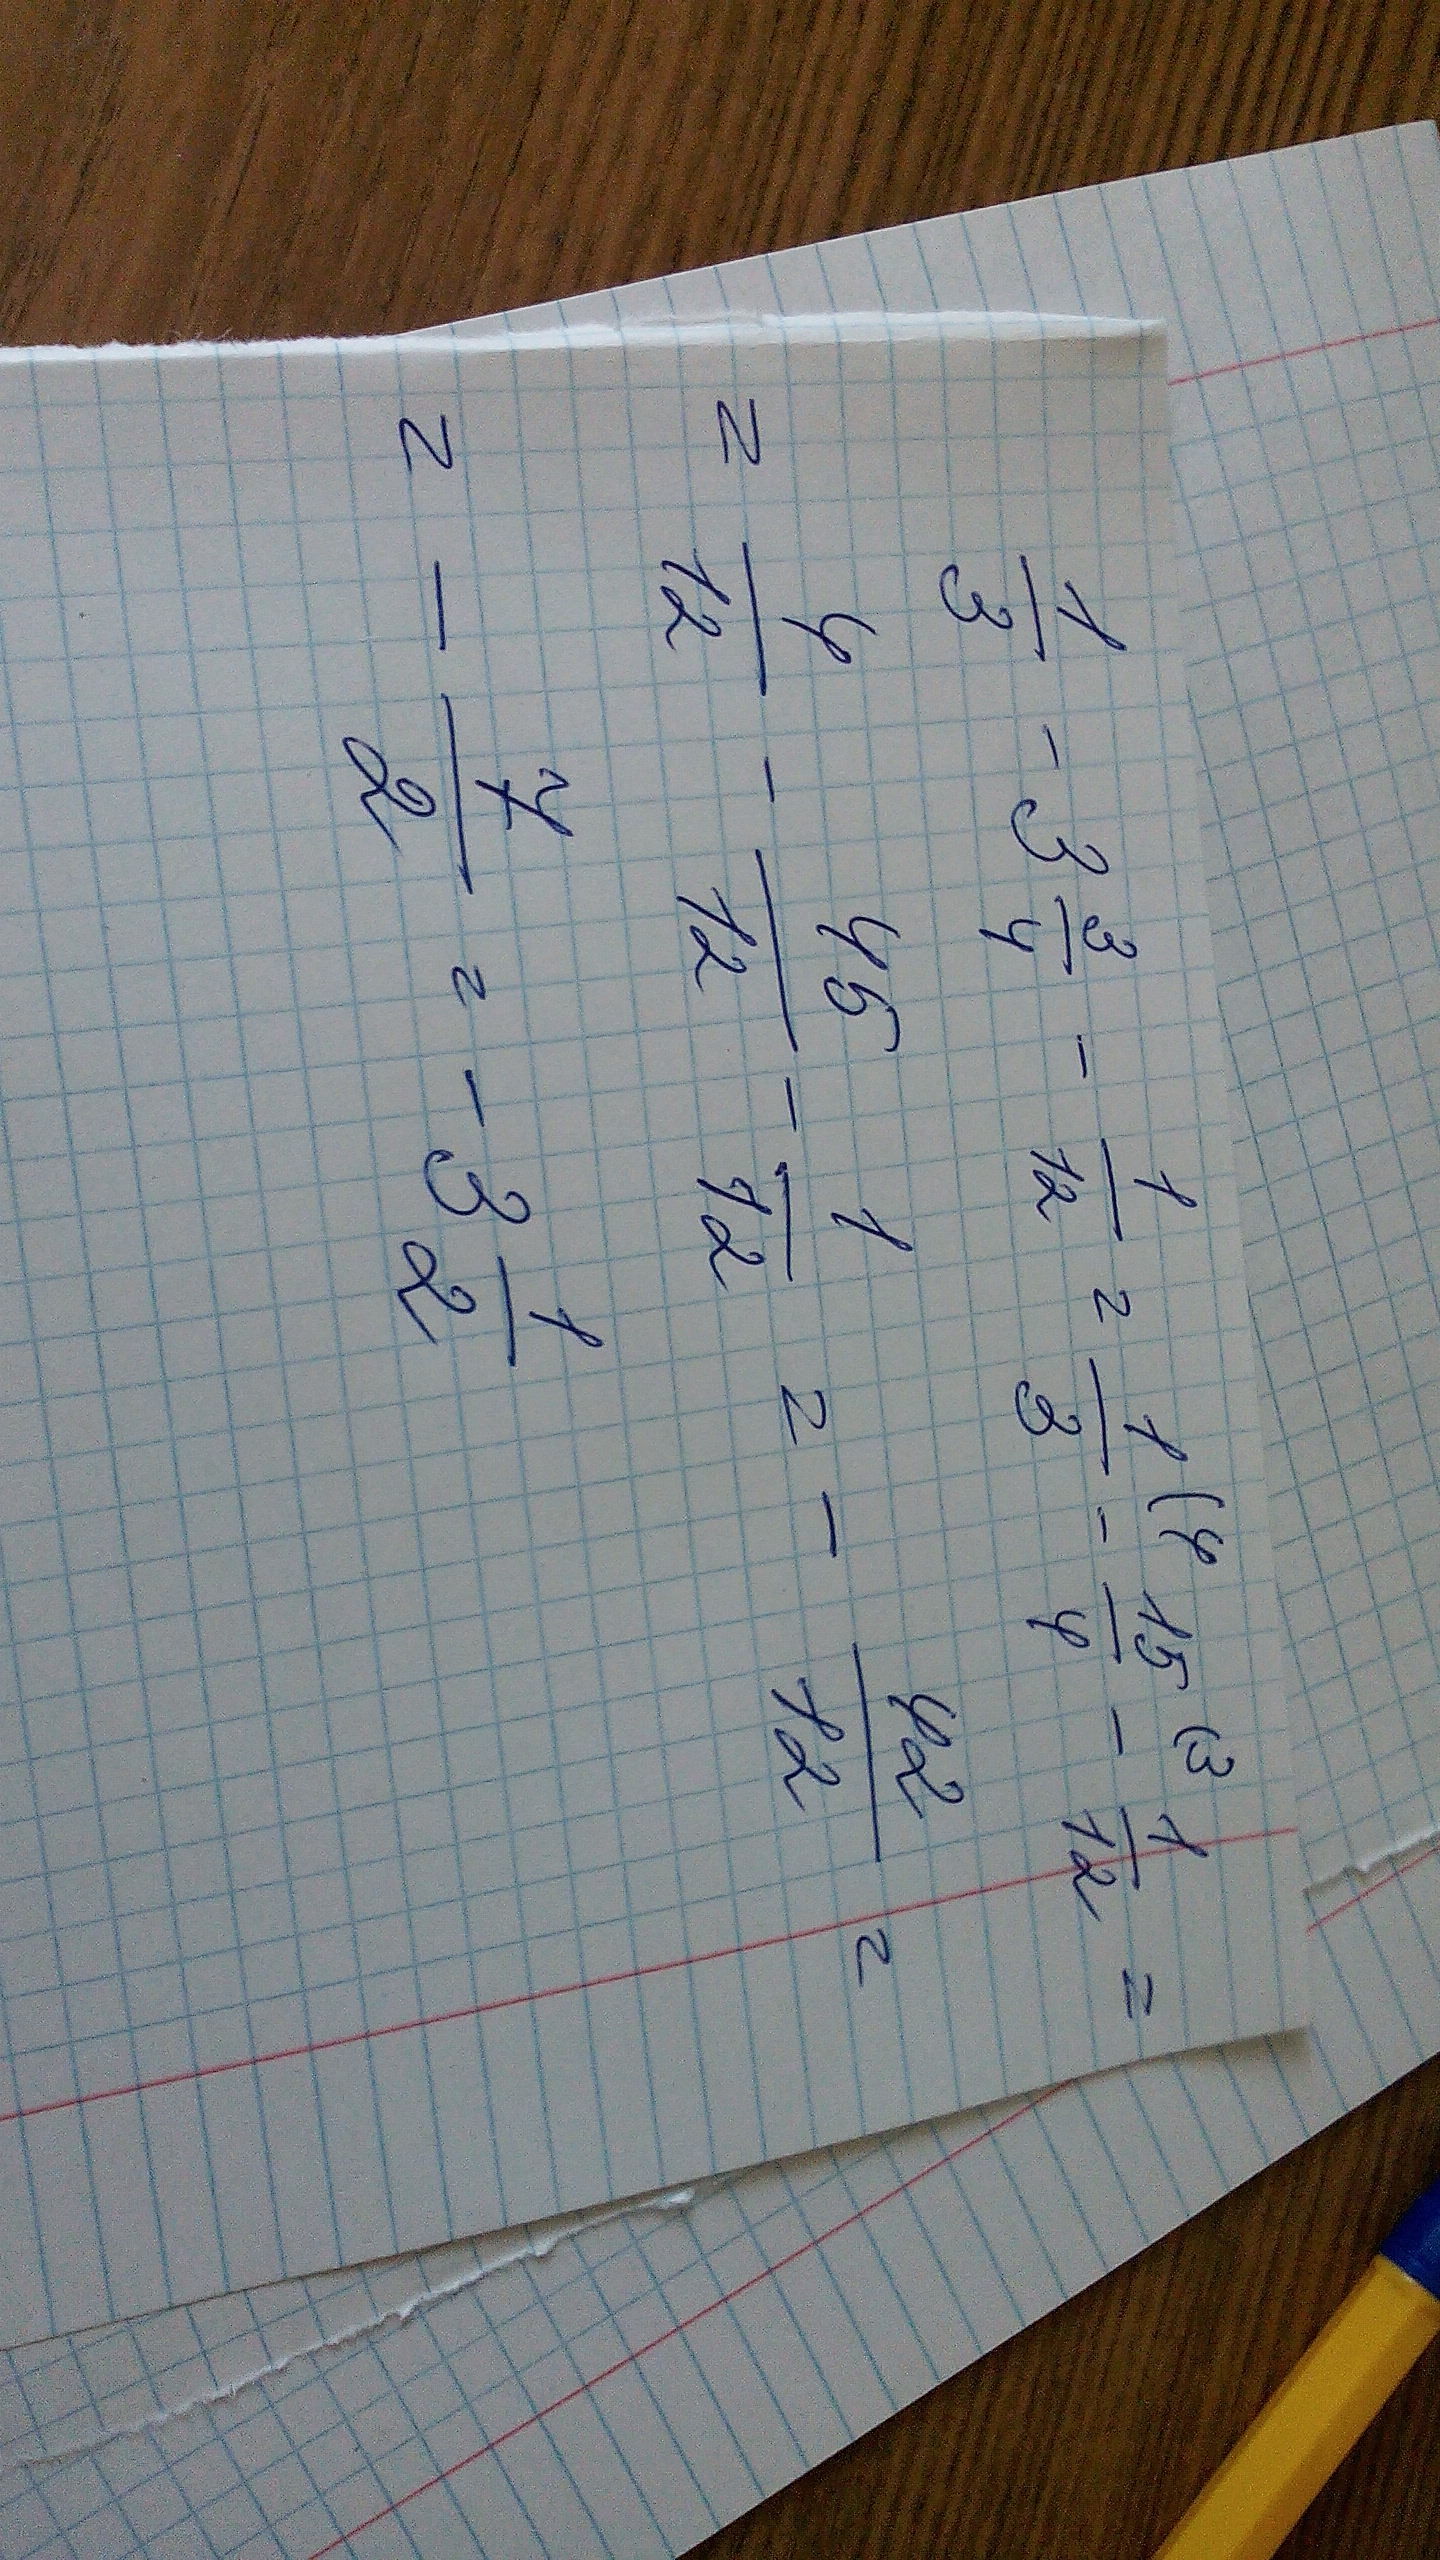 1/3 - 3 3/4 - 1/12 = 1/3 (4 - 15/4 (3 - 1/12 =
= 4/12 - 45/12 - 1/12 = - 42/12 =
= - 7/2 = - 3 1/2